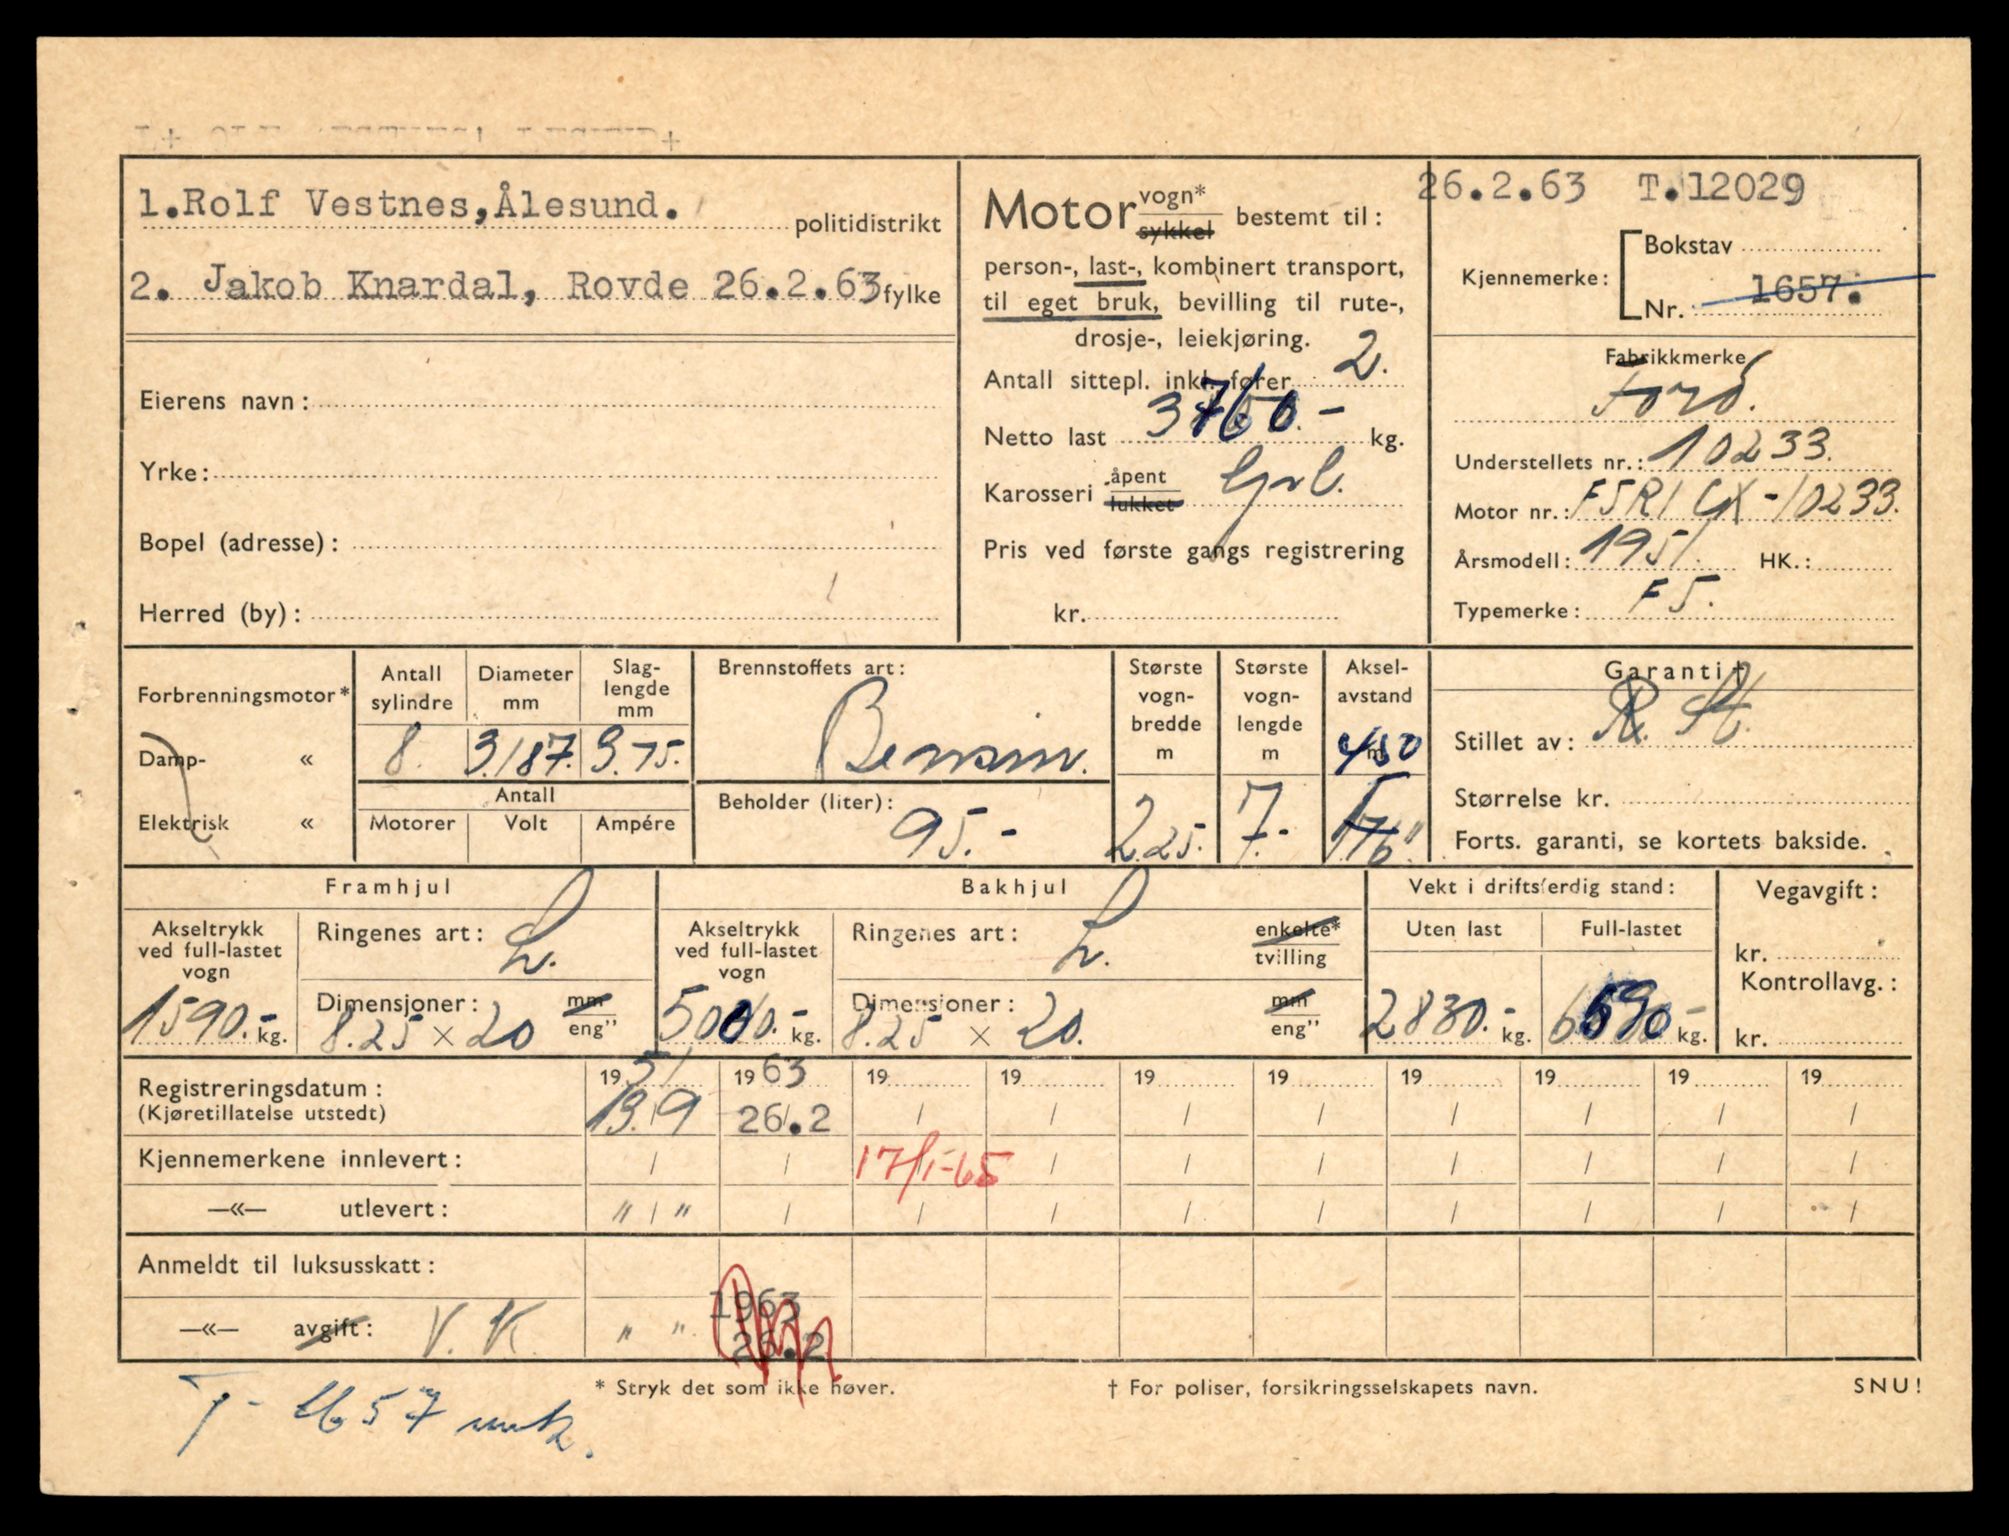 1.Rolf Vestnes,Ålesund. politidistrikt
2. Jakob Knardal, Rovde 26.2.63 fylke
Eierens navn:
Yrke:
Bopel (adresse):
Herred (by):
Motor vogn* sykkel bestemt til:
person-, last-, kombinert transport,
til eget bruk, bevilling til rute-,
drosje-, leiekjøring.
Antall sittepl. inkl. fører 2.
Netto last 3760.- kg.
Karosseri åpent lukket
Pris ved første gangs registrering
kr.
26.2.63 T.12029
Kjennemerke: Bokstav
Nr. 1657.
Fabrikkmerke
Ford.
Understellets nr.: 10233.
Motor nr.: F5R1CX-10233.
Årsmodell: 1951. HK.:
Typemerke: F5.
Forbrenningsmotor*
Damp- «
Elektrisk «
Antall sylindre Diameter mm Slag-lengde mm
8. 3.187. 3.75.
Antall
Motorer Volt Ampére
Brennstoffets art:
Bensin.
Beholder (liter):
95.-
Største vogn-bredde m
2.25.
Største vogn-lengde m
7.-
Aksel-avstand m
450
176"
Garanti†
Stillet av: St.
Størrelse kr.
Forts. garanti, se kortets bakside.
Framhjul
Akseltrykk ved full-lastet vogn
1590.- kg.
Ringenes art: L.
Dimensjoner: mm
8.25 × 20 eng"
Bakhjul
Akseltrykk ved full-lastet vogn
5000.- kg.
Ringenes art: L. enkelte* tvilling
Dimensjoner: mm
8.25 × 20. eng"
Vekt i driftsferdig stand:
Uten last Full-lastet
2830.- kg. 6590- kg.
Vegavgift:
kr.
Kontrollavg.:
kr.
Registreringsdatum: 1951 1963 19 19 19 19 19 19 19 19
(Kjøretillatelse utstedt) 13/9 26.2 / / / / / / / /
Kjennemerkene innlevert: / / 17/1-65 / / / / / / /
—«— utlevert: " / " / / / / / / / / /
Anmeldt til luksusskatt:
1963
—«— avgift: V.K. " " 26.2
* Stryk det som ikke høver.
† For poliser, forsikringsselskapets navn.
SNU!
T- 1657